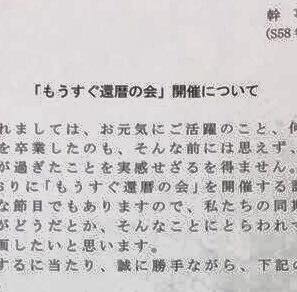 幹
(S58
「もうすぐ還暦の会」開催について
れましては、お元気にご活躍のこと、
を卒業したのも、そんな前には思えず、
が過ぎたことを実感せざるを得ません。
おりに「もうすぐ還暦の会」を開催する
な節目でもありますので、私たちの同
がどうだとか、そんなことにとらわれて
画したいと思います。
するに当たり、誠に勝手ながら、下記の